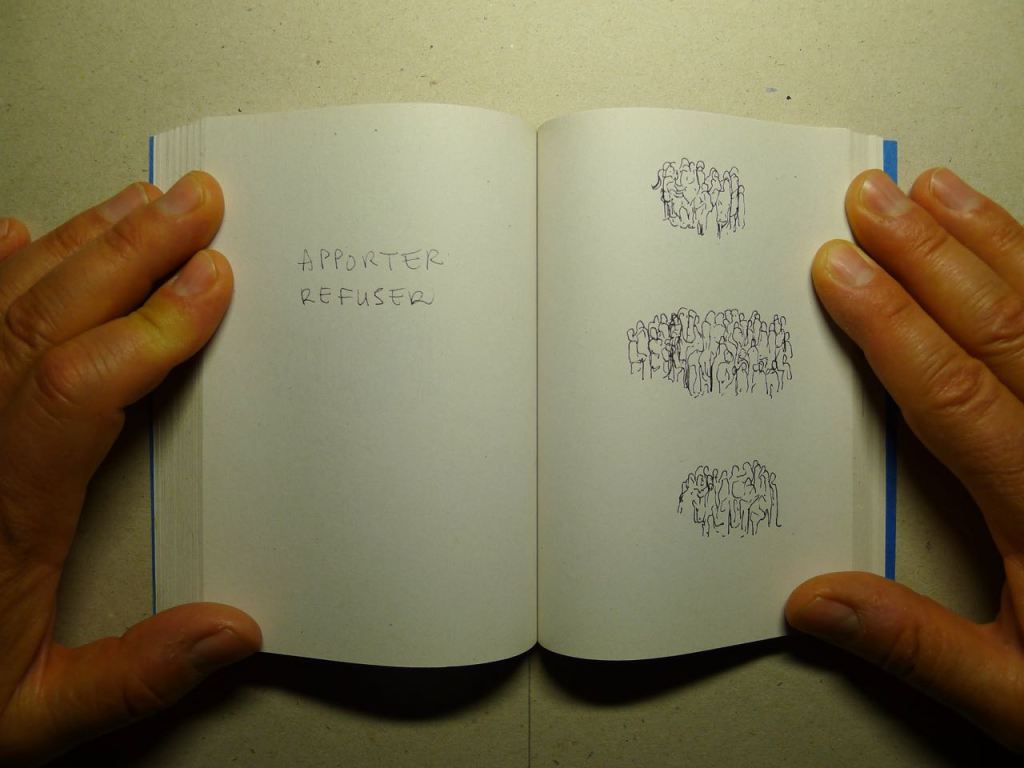 APPORTER
REFUSER